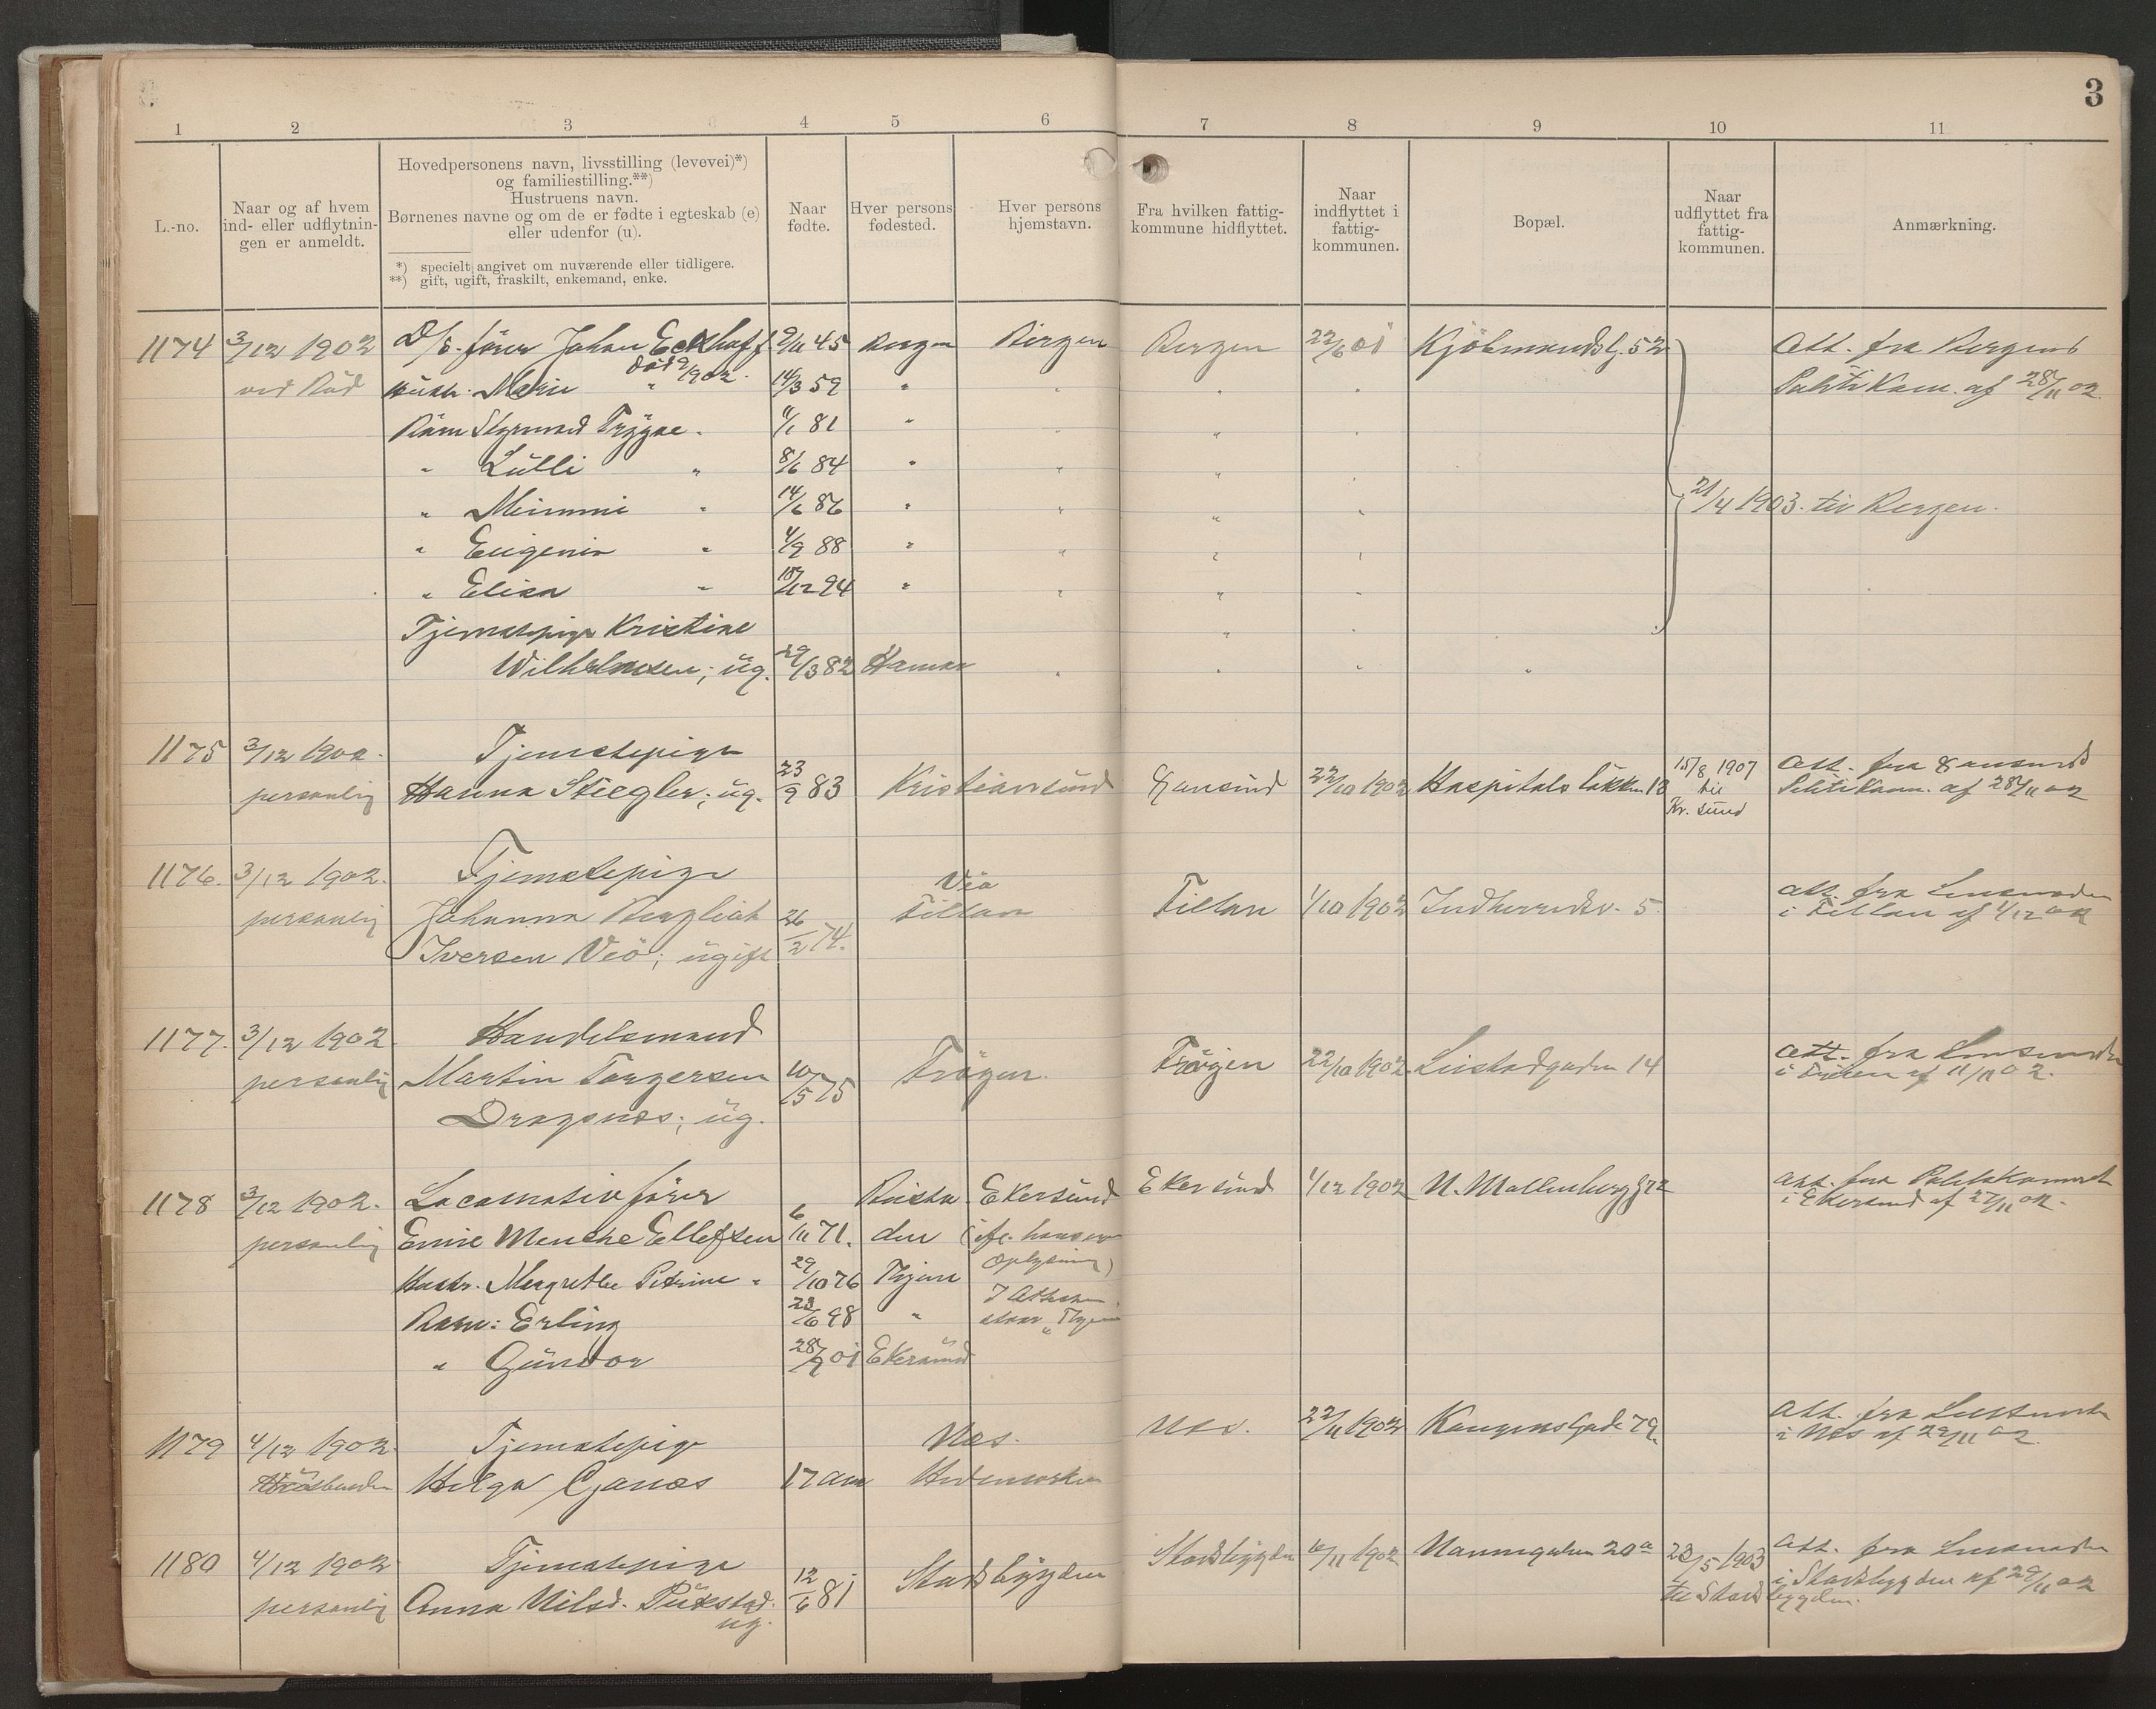 3
1 2 3 4 5 6 7 8 9 10 11
L.-no.
Naar og af hvem
ind- eller udflytnin-
gen er anmeldt.
Hovedpersonens navn, livsstilling (levevei)*)
og familiestilling.**)
Hustruens navn.
Børnenes navne og om de er fødte i egteskab (e)
eller udenfor (u).
*) specielt angivet om nuværende eller tidligere.
**) gift, ugift, fraskilt, enkemand, enke.
Naar
fødte.
Hver persons
fødested.
Hver persons
hjemstavn.
Fra hvilken fattig-
kommune hidflyttet.
Naar
indflyttet i
fattig-
kommunen.
Bopæl.
Naar
udflyttet fra
fattig-
kommunen.
Anmærkning.
1174 3/12 1902 D/S. fører Johan Eckhoff 9/11 45 Bergen Bergen Bergen 22/6 01 Kjöbmandsg. 52 Att. fra Bergens
ved Bud Hustr. Marie " 14/3 59 " " " " Politikam. af 28/11 02.
Barn Sigmund Trygve " 81 "
" Lulli " 8/6 84 " " " "
" Mimmi " 14/6 86 " " " " 21/4 1903 til Bergen.
" Eugenia " 4/9 88 " " " "
" Elisa " 94 " " " "
Tjenestepige Kristine " "
Wilhelmsen; ug. 29/3 82 Hamar " " " "
1175 3/12 1902. Tjenestepige 15/8 1907 Att. fra
personlig Hanna Stiegler; ug. 23/9 83 Kristiansund 22/10 1902 Hospitalsløkken 18 til Politikam. af 28/11 02
Kr. sund
1176. 3/12 1902. Tjenestepige Viö Att. fra Lensmanden
personlig Johanna 26/2 74. Fillan Fillan 1/10 1902 Indherredsv. 5. i Fillan af 1/12 02
Iversen Viö; ugift
1177. 3/12 1902 Handelsmand Att. fra Lensmanden
personlig Martin Torgersen 10/5 75 Fröyen Fröyen 22/10 1902 14 i Fröien af 11/11 02.
Dragsnes; ug.
1178 3/12 1902. Locomotivfører Ekersund Ekersund 1/12 1902 N. Möllenberg g. 72 Att. fra Politikammeret
personlig Emil Menche Ellefsen 6/11 71. den (ifl. hans egen i Ekersund af 27/11 02.
Hustr. Margrethe Petrine " 29/10 76 oplysning)
Barn: Erling 98 " I Attesten
" Gunvor 28/9 01 Ekersund staar
1179 4/12 1902. Tjenestepige Nes. Nes. 22/11 1902 Kongensgade 79. Att. fra Lensmanden
Husbonden Helga Gjanes 17 aar Hedemarken i Nes af 29/11 02.
1180 4/12 1902 Tjenestepige Stadsbygden 10/11 1902 Nannagaden 20a 23/5 1903 Att. fra Lensmanden
personlig Anna Nilsd. Pukstad. 12/6 81 Stadsbygden til Stadsbygden. i Stadsbygden af 29/11 02
ug.